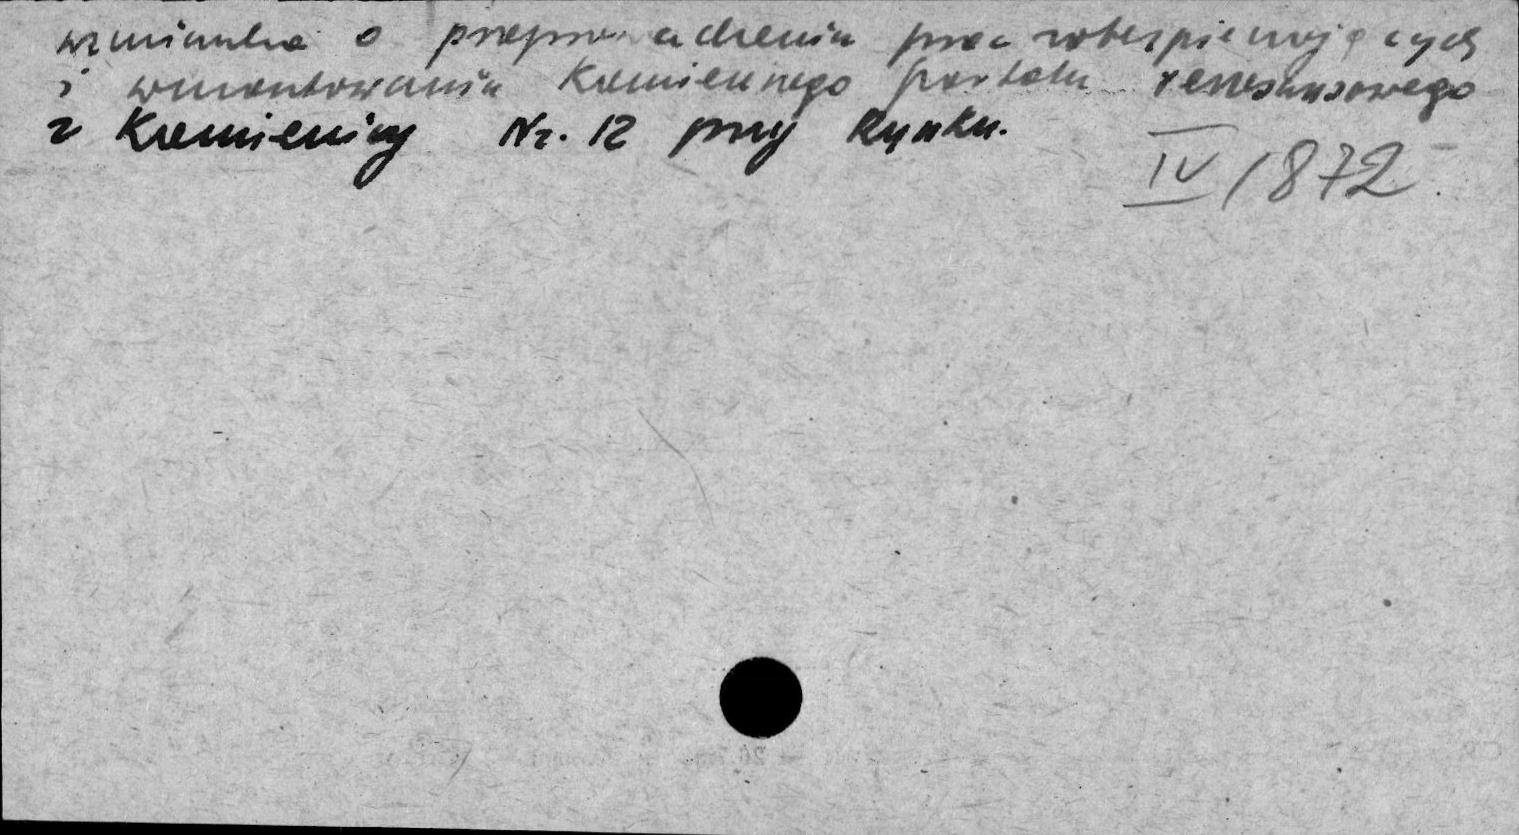 wzmianka o przeprowadzeniu prac zabezpieczających
i wmontowaniu Kamiennego portalu renesansowego
z Kamienicy Nr. 12 przy Rynku.
IV/872